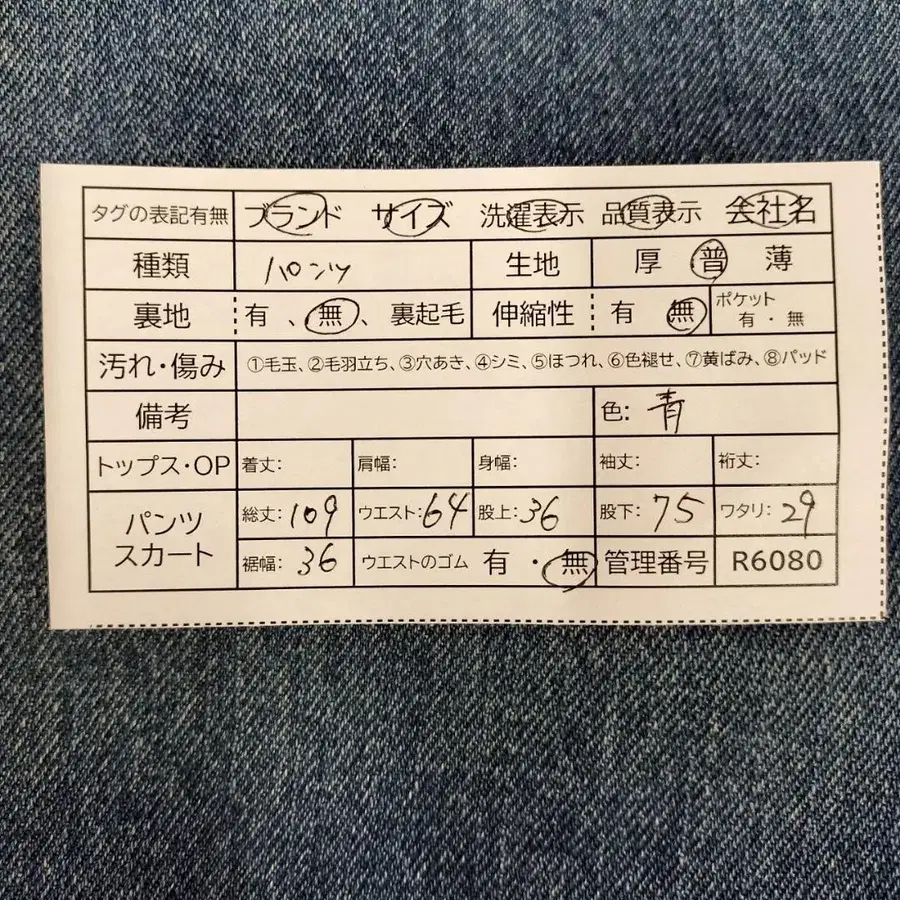 タグの表記有無 ブランド サイズ 洗濯表示 品質表示 会社名
種類 パンツ 生地 厚 普 薄
裏地 有 、 無 、 裏起毛 伸縮性 有 無 ポケット 有 ・ 無
汚れ・傷み ①毛玉、②毛羽立ち、③穴あき、④シミ、⑤ほつれ、⑥色褪せ、⑦黄ばみ、⑧パッド
備考 色: 青
トップス・OP 着丈: 肩幅: 身幅: 袖丈: 裄丈:
パンツ スカート 総丈: 109 ウエスト: 64 股上: 36 股下: 75 ワタリ: 29
裾幅: 36 ウエストのゴム 有 ・ 無 管理番号 R6080